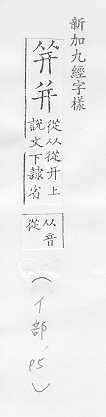 新加九經字樣
幷并
從从從幵上
說文下隸省
从音
從
（亻部，P5）